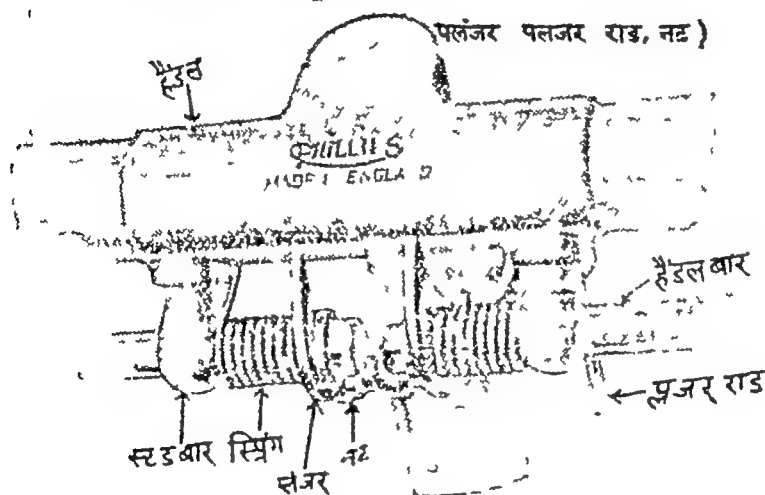 (पलंजर पलजर राड, नट)
हैंडल
PHILLIPS
MADE ENGLAND
हैंडल बार
प्लजर राड
स्टडबार स्प्रिंग
नट